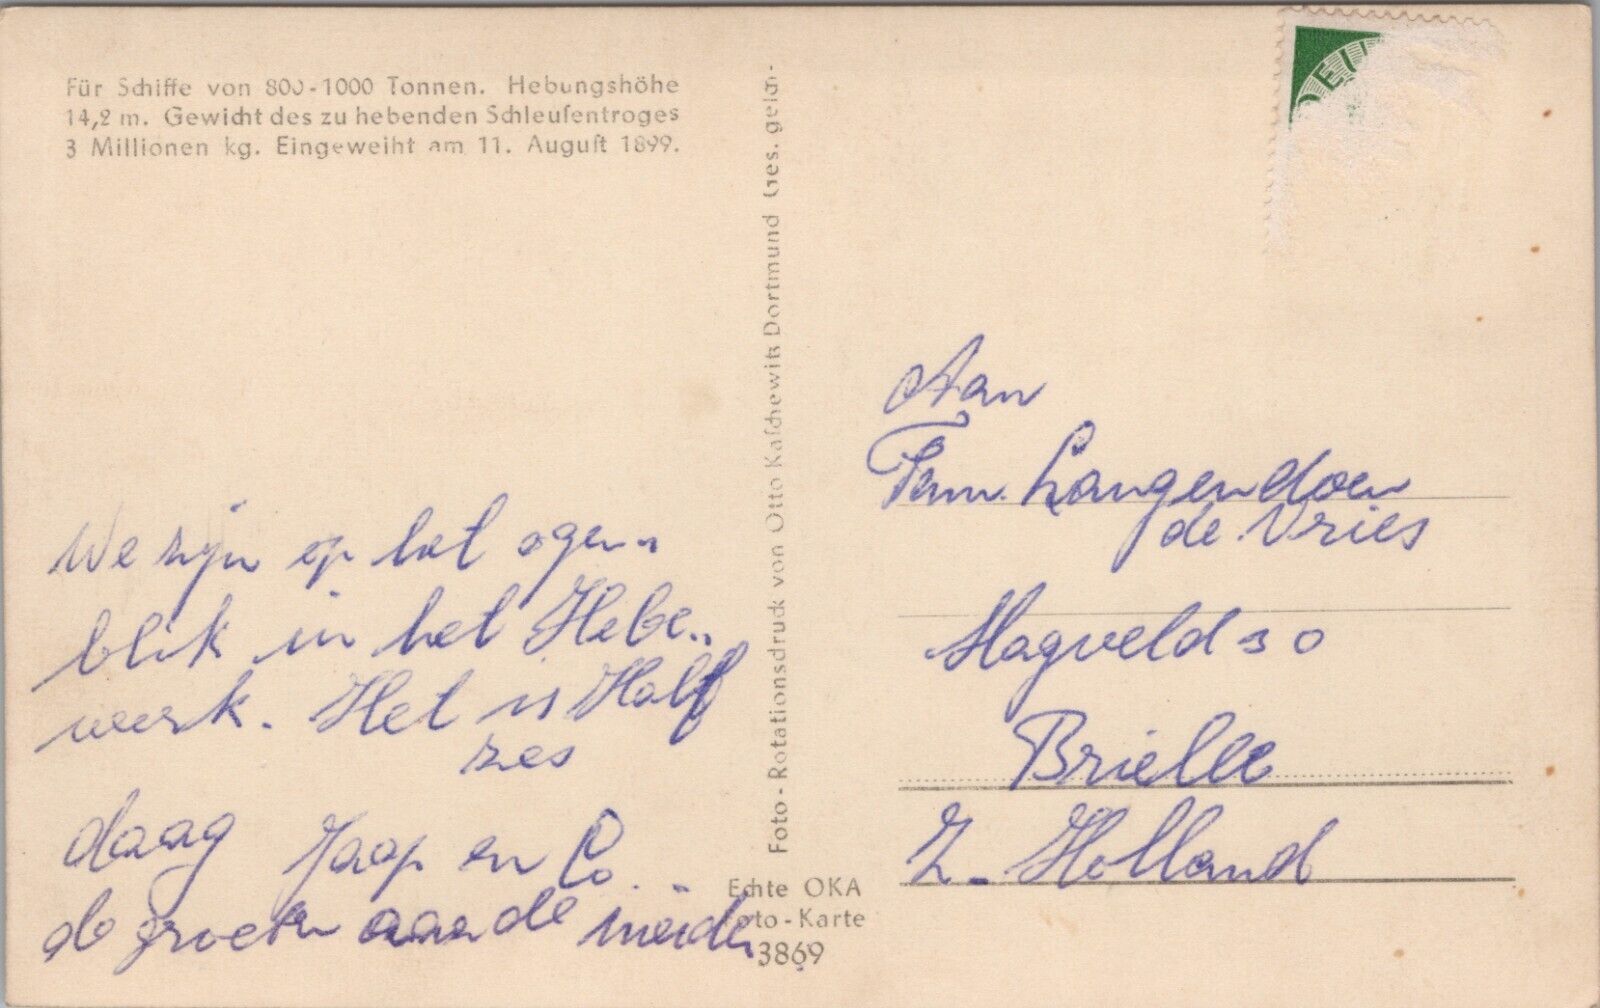 Für Schiffe von 800-1000 Tonnen. Hebungshöhe
14,2 m. Gewicht des zu hebenden Schleuſentroges
3 Millionen kg. Eingeweiht am 11. Auguſt 1899.
We zijn op het ogen..
blik in het Hebe..
werk. Het is Half
zes
daag Jaap en Co..
de groeten aan de
Foto-Rotationsdruck von Otto Kaſchewitz Dortmund Ges. gesch.
Echte OKA
Foto-Karte
3869
Aan
Fam. Langendoen
de Vries
Magveld 30
Brielle
Z- Holland